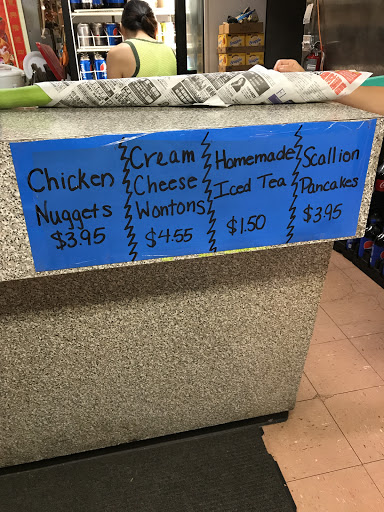 Chicken
Nuggets
$3.95
Cream
Cheese
Wontons
$4.55
Homemade
Iced Tea
$1.50
Scallion
Pancakes
$3.95